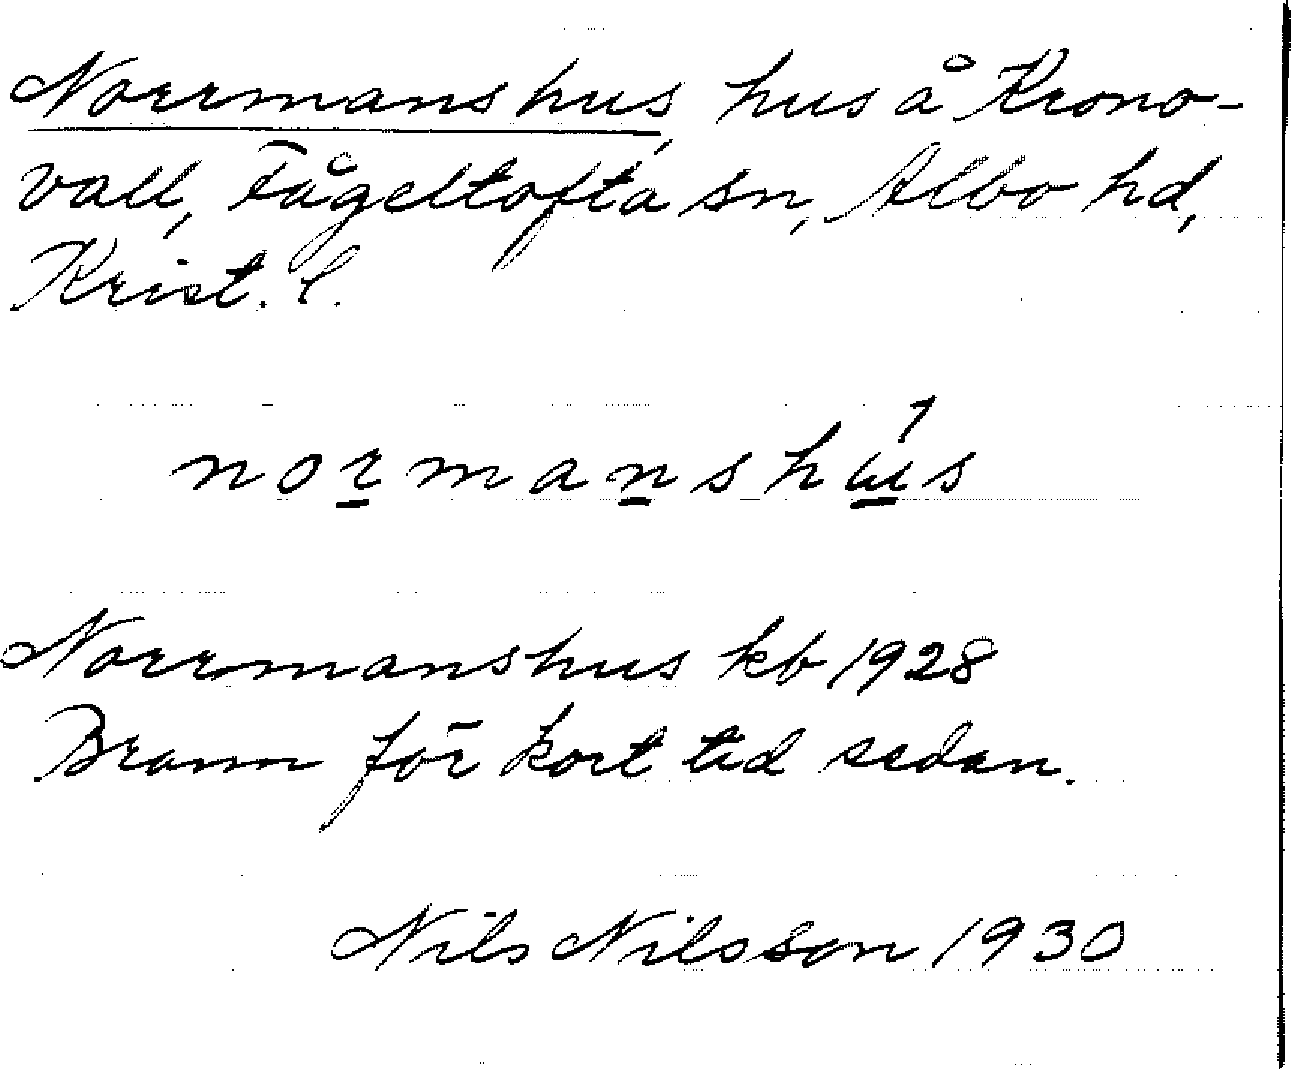 Norrmanshus, hus å Krono-
vall, Fågeltofta sn, Albo hd,
Krist. l.
normanshús
Norrmanshus kb 1928
Brann för kort tid sedan.
Nils Nilsson 1930